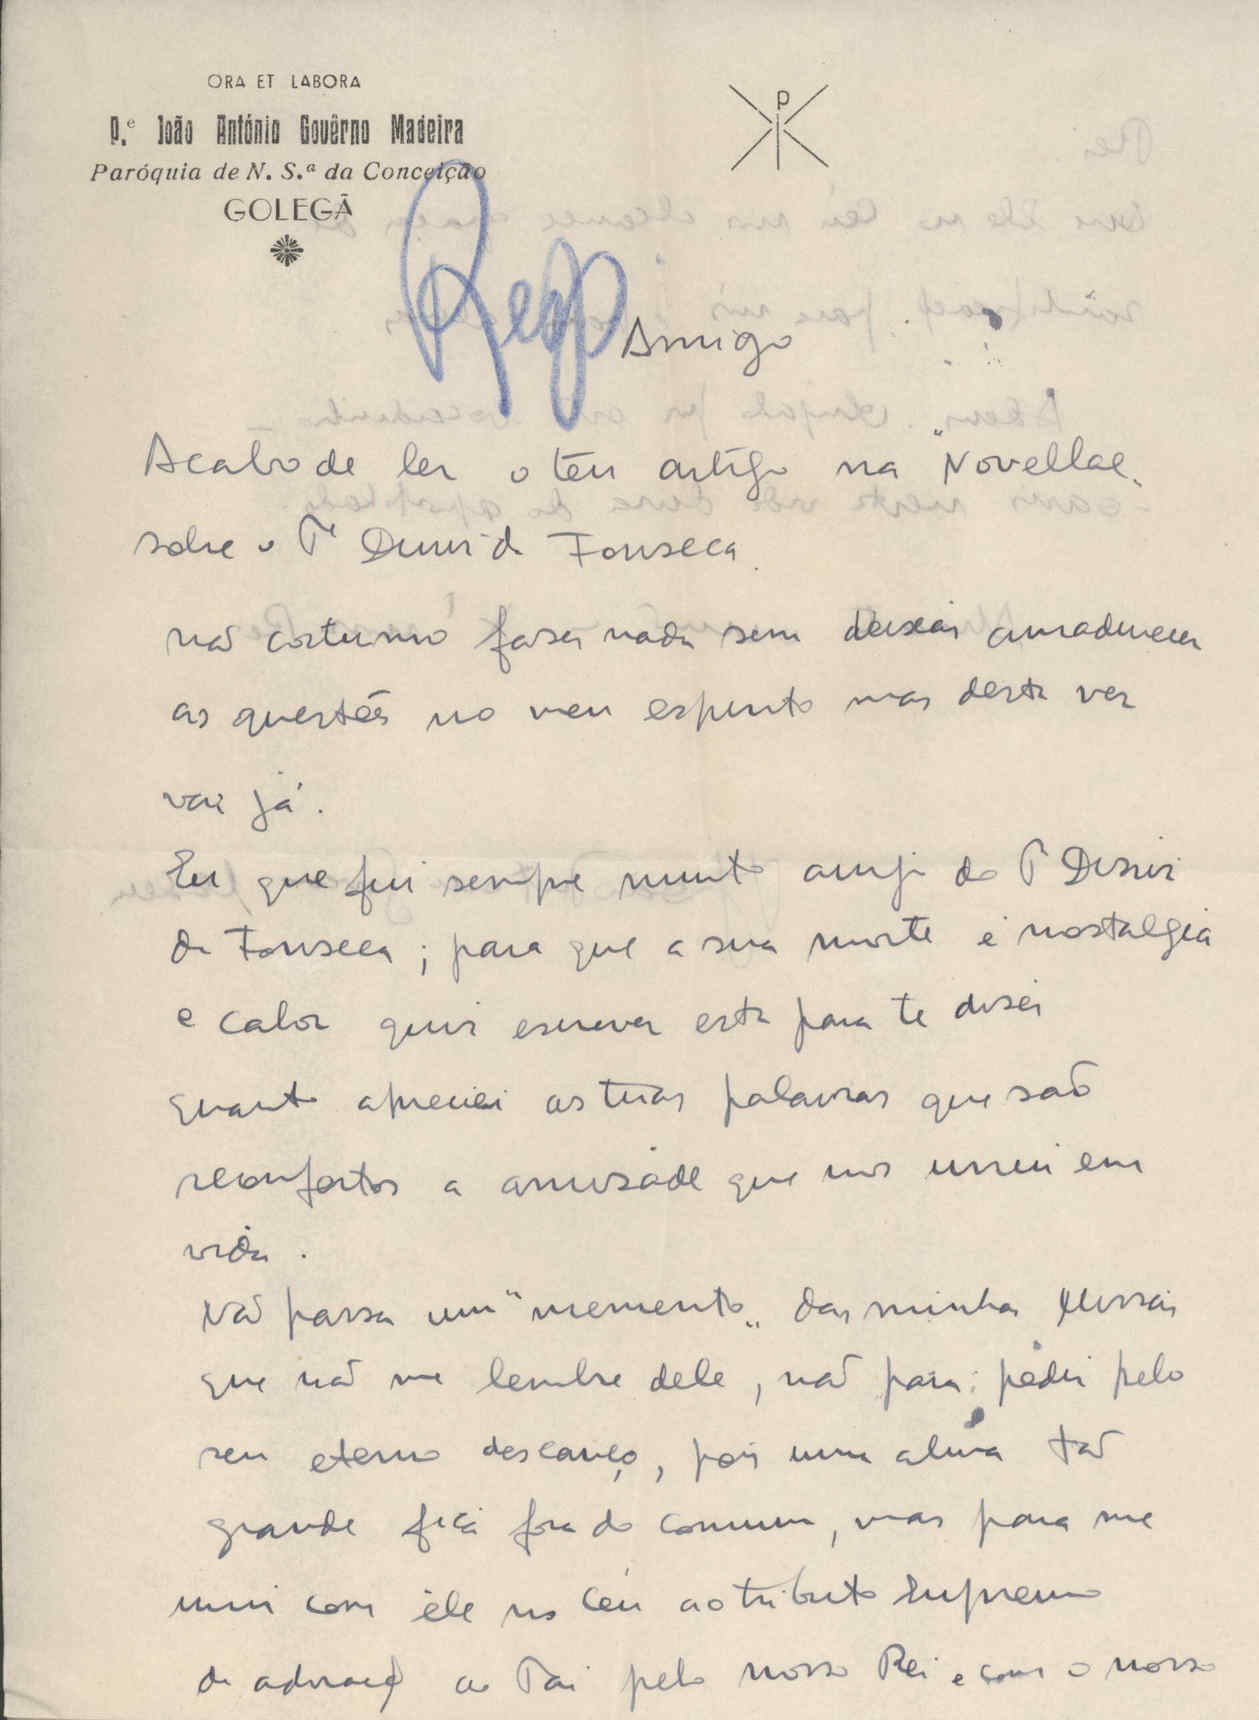 ORA ET LABORA
P.e João António Govêrno Madeira
Paróquia de N. S.ª da Conceição
GOLEGÃ
Resp
Amigo
Acabo de ler o teu artigo na "Novellae"
sobre o Pe Diniz da Fonseca.
não costumo fazer nada sem deixar amadurecer
as questões no meu espirito mas desta vez
vai já.
Eu que fui sempre muito amigo do P Diniz
da Fonseca; para que a sua morte é nostalgia
e calor quis escrever esta para te dizer
quanto apreciei as tuas palavras que são
reconfortos a amizade que nos uniu em
vida.
Não passa um "memento" das minhas Missas
que não me lembre dele, não para pedir pelo
seu eterno descanço, pois uma alma tão
grande fica fora do comum, mas para me
unir com êle no Céu ao tributo supremo
de adoração ao Pai pelo nosso Rei e com o nosso